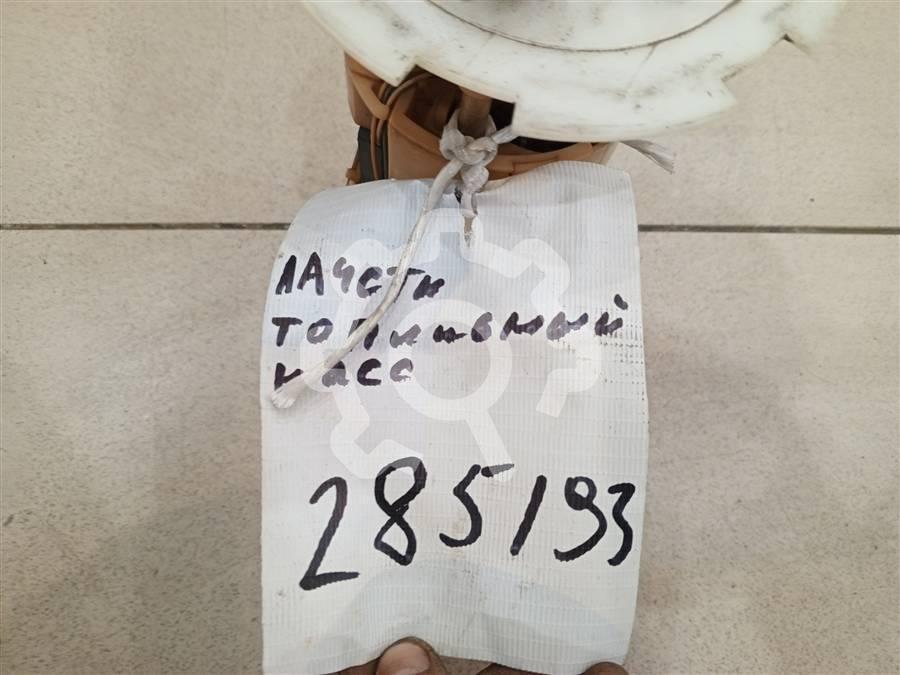 ЛАЧЕТИ
ТОПЛИВНЫЙ
НАСО
285193